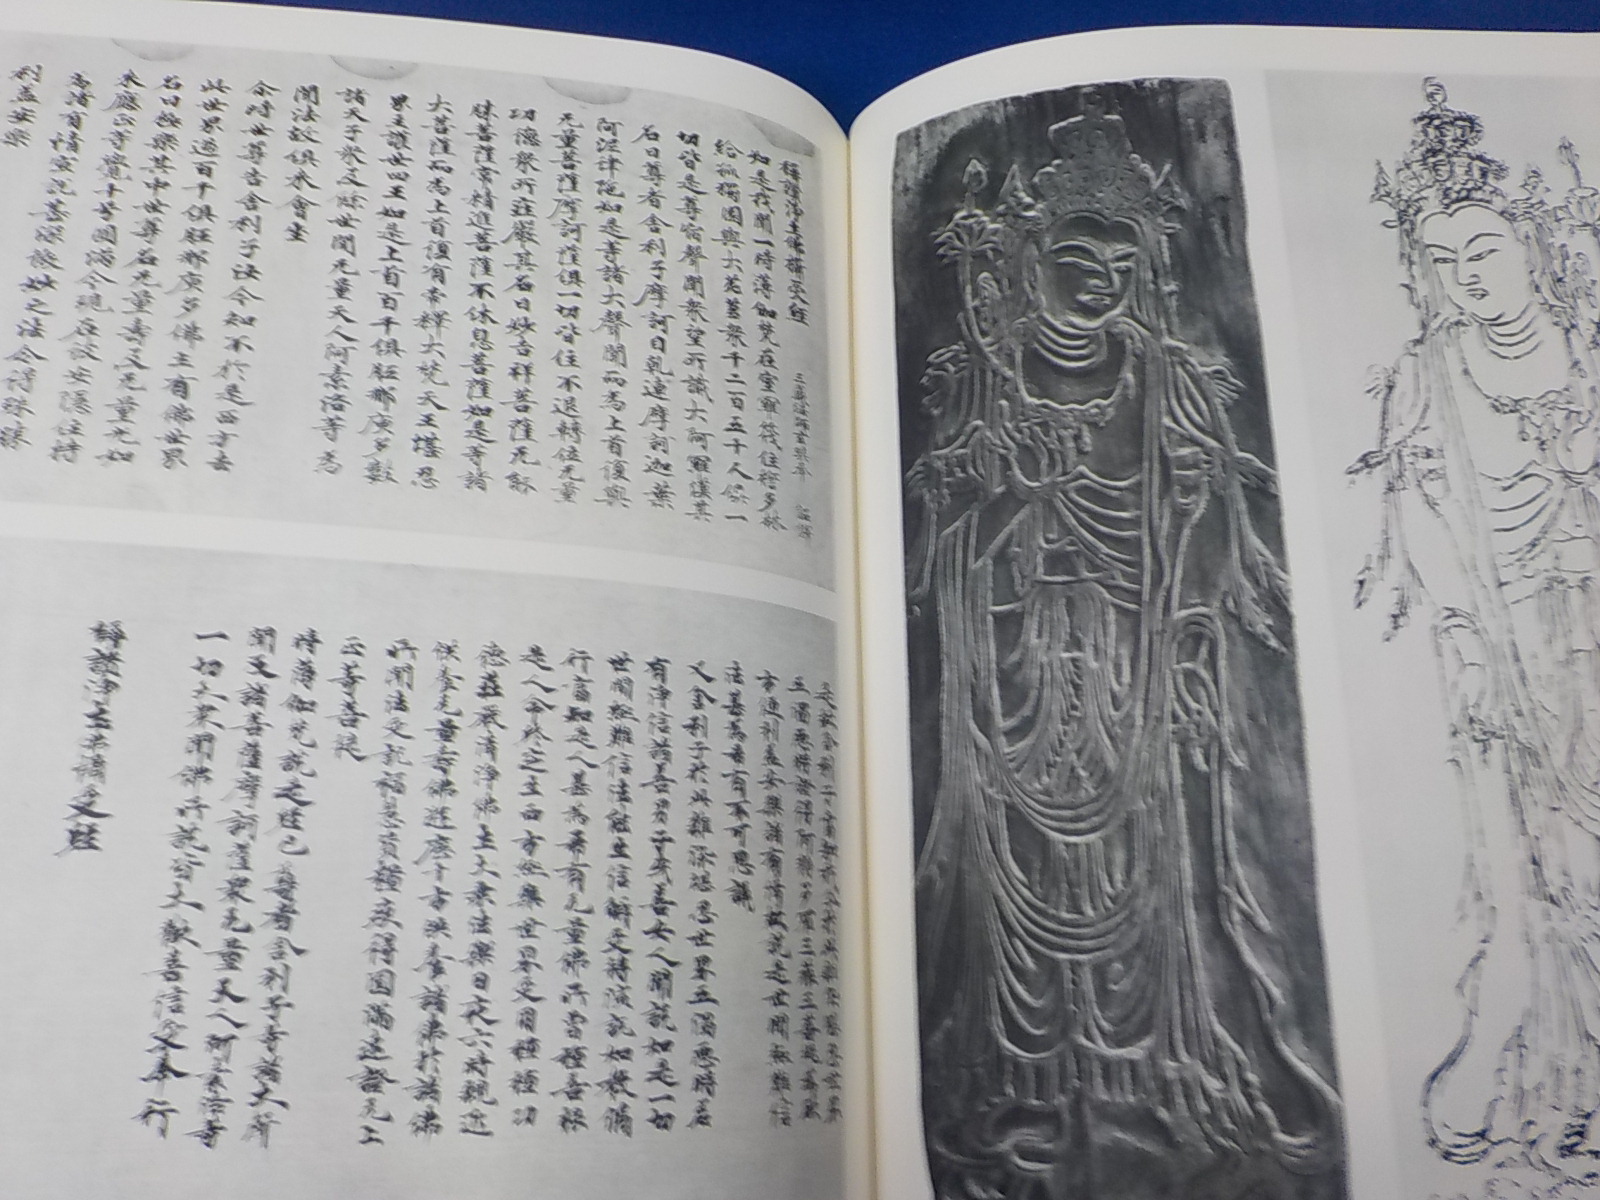 稱讚淨土佛攝受經
三藏法師玄奘奉 詔譯
如是我聞一時薄伽梵在室羅筏住誓多林
給孤獨園與大苾芻衆千二百五十人俱一
切皆是尊宿聲聞衆望所識大阿羅漢其
名曰尊者舍利子摩訶目乾連摩訶迦葉
阿泥律陁如是等諸大聲聞而為上首復與
无量菩薩摩訶薩俱一切皆住不退轉位无量
功德衆所莊嚴其名曰妙吉祥菩薩无能
勝菩薩常精進菩薩不休息菩薩如是等諸
大菩薩而為上首復有帝釋大梵天王堪忍
界主護世四王如是上首百千俱胝那庾多數
諸天子衆及餘世間无量天人阿素洛等為
聞法故俱來會坐
尒時世尊告舍利子汝今知不於是西方去
此世界過百千俱胝那庾多佛土有佛世界
名曰極樂其中世尊名无量壽及无量光如
來應正等覺十号圓滿今現在彼安隱住持
為諸有情宣說甚深微妙之法令得殊勝
利益安樂
方便利益安樂諸有情故說是世間極難信
法甚為希有不可思議
又舍利子於此雜染堪忍世界五濁惡時若
有淨信諸善男子或善女人聞說如是一切
世間極難信法能生信解受持演說如教脩
行當知是人甚為希有无量佛所曾種善根
是人命終定生西方極樂世界受用種種功
德莊嚴清淨佛土大乘法樂日夜六時親近
供養无量壽佛遊歷十方供養諸佛於諸佛
所聞法受記福慧資糧疾得圓滿速證无上
正等菩提
時薄伽梵說是經已尊者舍利子等諸大聲
聞及諸菩薩摩訶薩衆无量天人阿素洛等
一切大衆聞佛所說皆大歡喜信受奉行
稱讚淨土佛攝受經